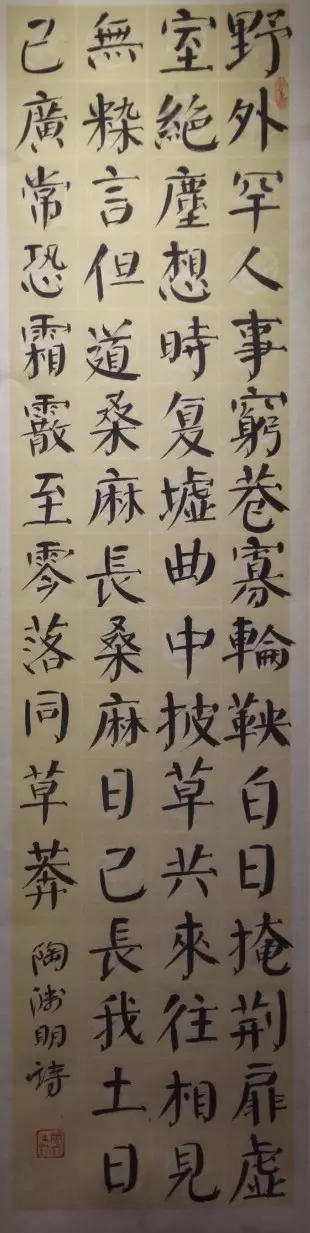 野外罕人事窮巷寡輪鞅白日掩荆扉虛
室絕塵想時复墟曲中披草共來往相見
無言但道桑麻長桑麻日己長我土日
己廣常恐霜霰至零落同草莽
陶渊明詩